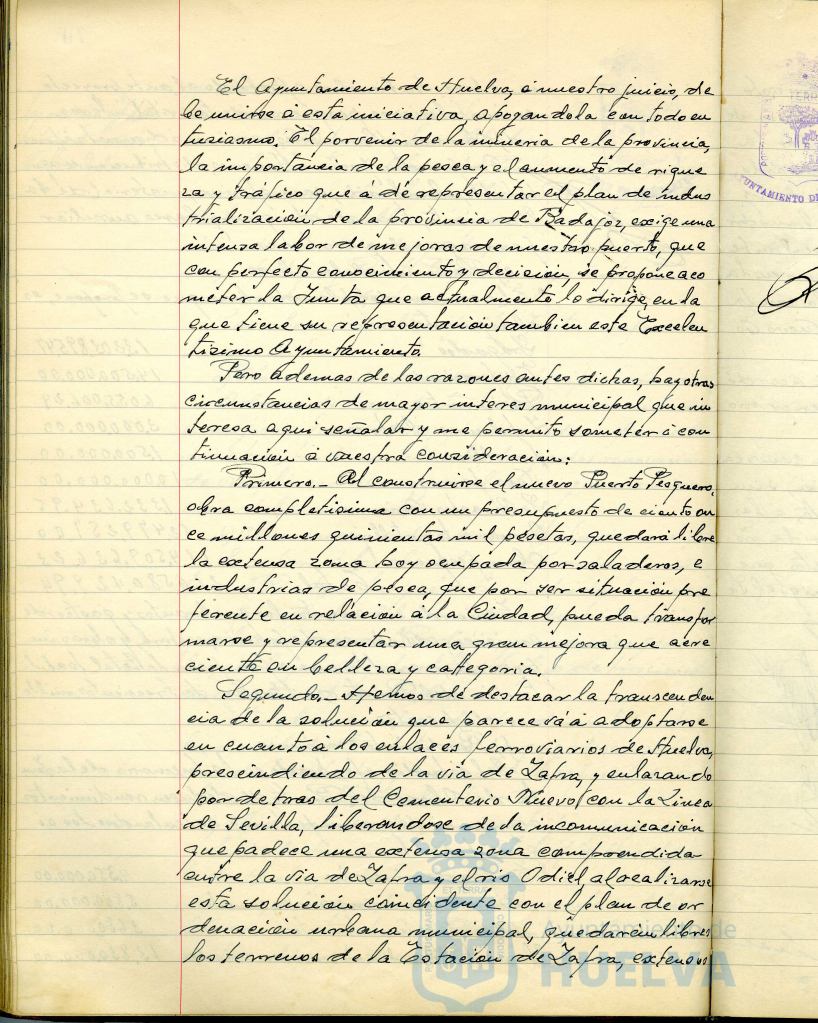 El Ayuntamiento de Huelva, á nuestro juicio, de
be unirse á esta iniciativa, apoyandola con todo en
tusiasmo. El porvenir de la mineria de la provincia,
la importancia de la pesca y el aumento de rique
za y tráfico que á de representar el plan de indus
trialización de la provincia de Badajoz, exige una
intensa labor de mejoras de nuestro puerto, que
con perfecto conocimiento y decición, se propone aco
meter la Junta que actualmente lo dirige, en la
que tiene su representación tambien este Excelen
tisimo Ayuntamiento.
Pero ademas de las razones antes dichas, hay otras
circunstancias de mayor interes municipal que in
teresa aqui señalar y me permito someter á con
tinuación á vuestra consideración:
Primero.- Al construirse el nuevo Puerto Pesquero,
obra completisima con un presupuesto de ciento on
ce millones quinientas mil pesetas, quedará libre
la extensa zona hoy ocupada por saladeros, e
industrias de pesca, que por ser situación pre
ferente en relación á la Ciudad, pueda transfor
marse y representar una gran mejora que acre
ciente en belleza y categoria.
Segundo.- Hemos de destacar la transcenden
cia de la solución que parece vá á adoptarse
en cuanto á los enlaces ferroviarios de Huelva,
prescindiendo de la via de Zafra, y enlazando
por detras del Cementerio Nuevo con la Linea
de Sevilla, liberandose de la incomunicación
que padece una extensa zona comprendida
entre la via de Zafra y el rio Odiel, al realizarse
esta solución coincidente con el plan de or
denación urbana municipal, quedarán libres
los terrenos de la Estación de Zafra, extensos
Ayuntamiento de
HUELVA